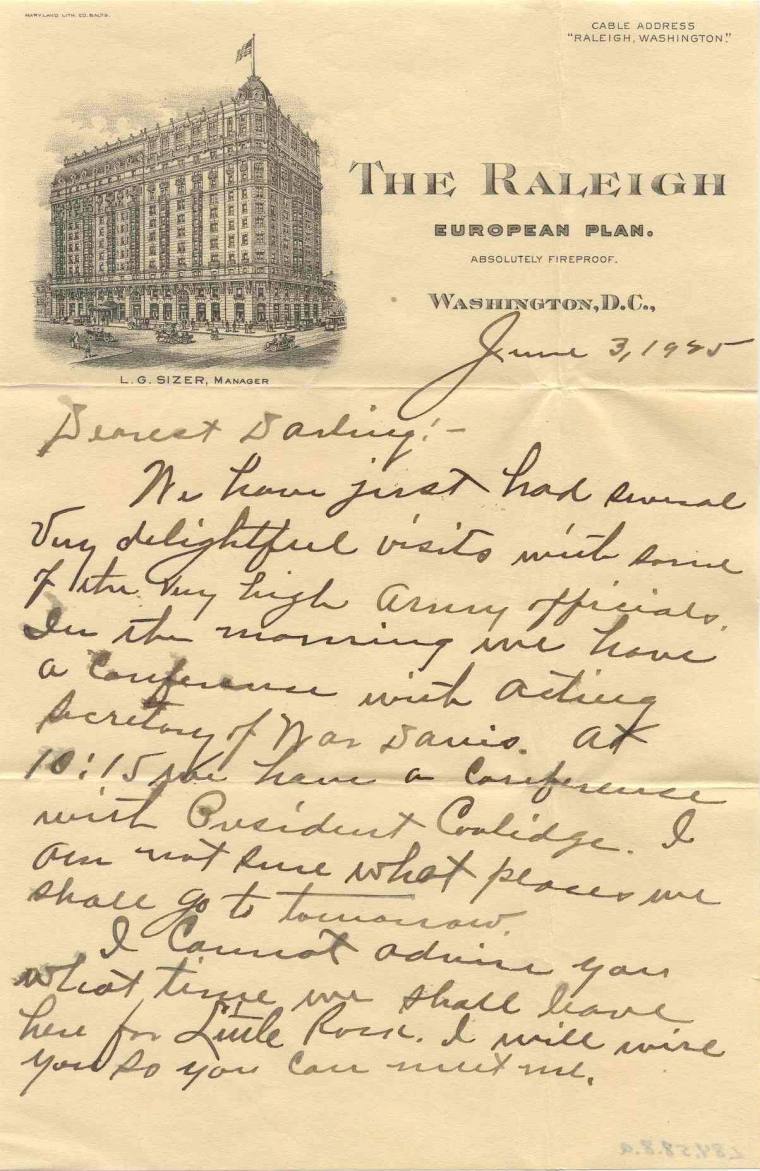 MARYLAND LITH. CO. BALTO.
CABLE ADDRESS
"RALEIGH, WASHINGTON."
THE RALEIGH
EUROPEAN PLAN.
ABSOLUTELY FIREPROOF.
WASHINGTON, D.C.,
June 3, 1925
L. G. SIZER, MANAGER
Dearest Darling:-
We have just had several
very delightful visits with some
of the very high Army officials.
In the morning we have
a conference with Acting
Secretary of War Davis. At
10:15 we have a conference
with President Coolidge. I
am not sure what places we
shall go to tomorrow.
I cannot advise you
what time we shall leave
here for Little Rock. I will wire
you so you can meet me.
L84.58.8.a